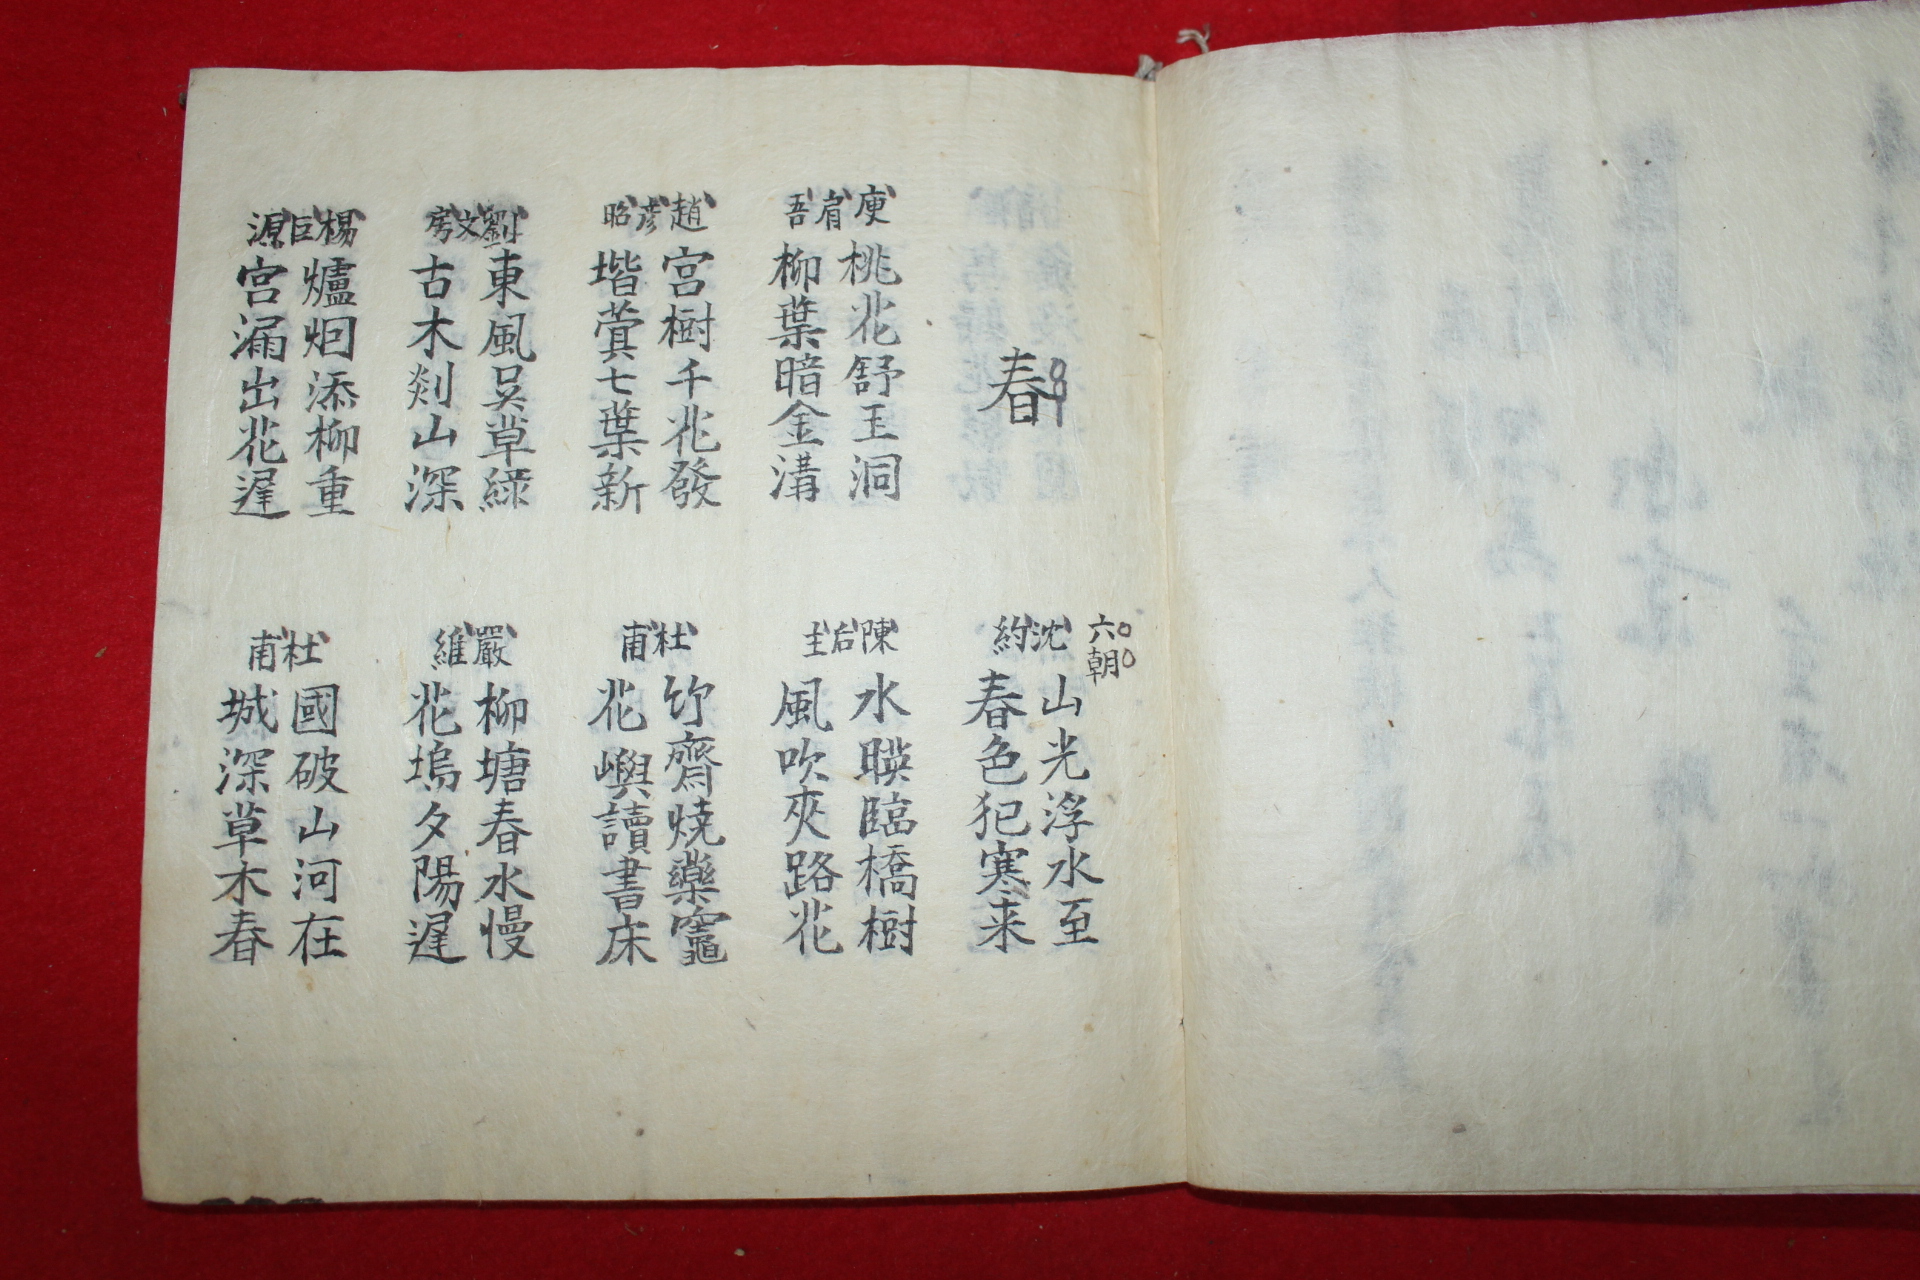 春
六朝
沈約
山光浮水至
春色犯寒来
庾肩吾
桃花舒玉洞
柳葉暗金溝
陳后主
水暎臨橋樹
風吹夾路花
趙彦昭
宮樹千花發
堦蓂七葉新
杜甫
竹齋燒藥竈
花嶼讀書床
劉文房
東風吳草綠
古木剡山深
嚴維
柳塘春水慢
花塢夕陽遲
楊巨源
爐烟添柳重
宮漏出花遲
杜甫
國破山河在
城深草木春